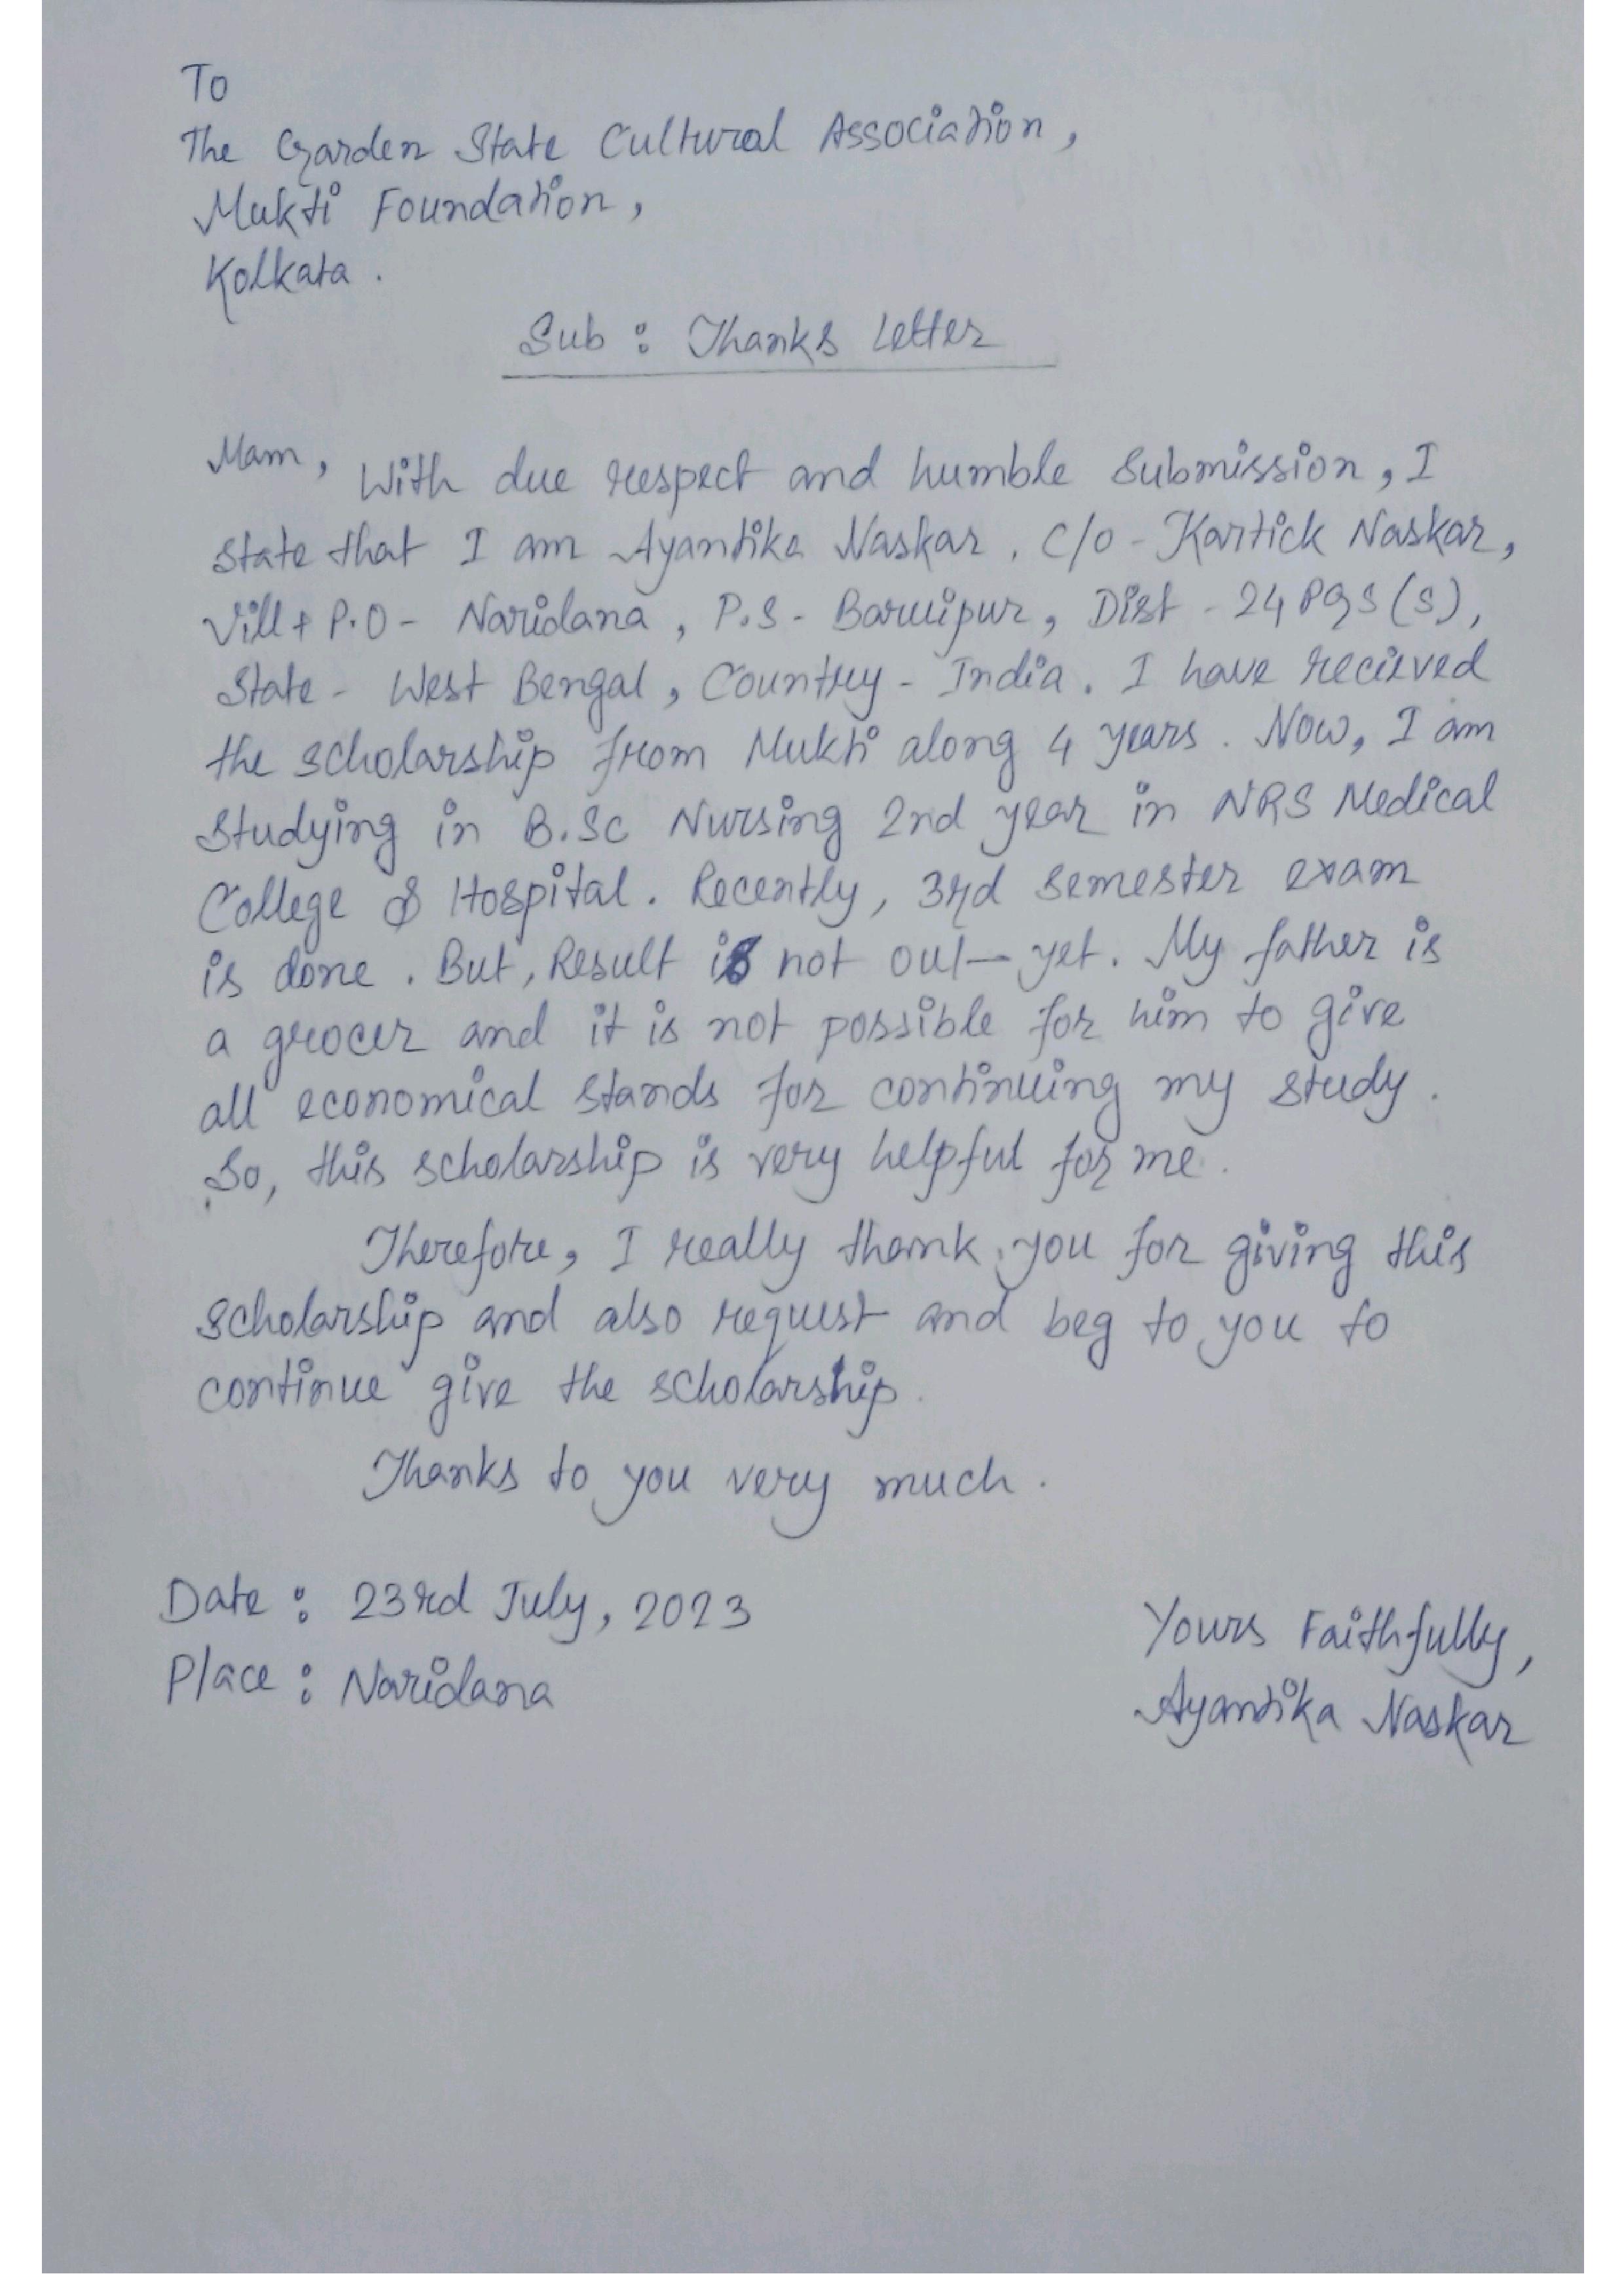 To
The Garden State Cultural Association,
Mukti Foundation,
Kolkata.
Sub : Thanks Letter
Mam, With due respect and humble submission, I
state that I am Ayantika Naskar, C/o - Kartick Naskar,
Vill + P.O - Naridana, P.S - Baruipur, Dist - 24 Pgs (s),
State - West Bengal, Country - India. I have recieved
the scholarship from Mukti along 4 years. Now, I am
studying in B.Sc Nursing 2nd year in NRS Medical
College & Hospital. Recently, 3rd semester exam
is done. But, Result is not out yet. My father is
a grocer and it is not possible for him to give
all economical stands for continuing my study.
So, this scholarship is very helpful for me.
Therefore, I really thank you for giving this
scholarship and also request and beg to you to
continue give the scholarship.
Thanks to you very much.
Date : 23rd July, 2023
Place : Naridana
Yours Faithfully,
Ayantika Naskar